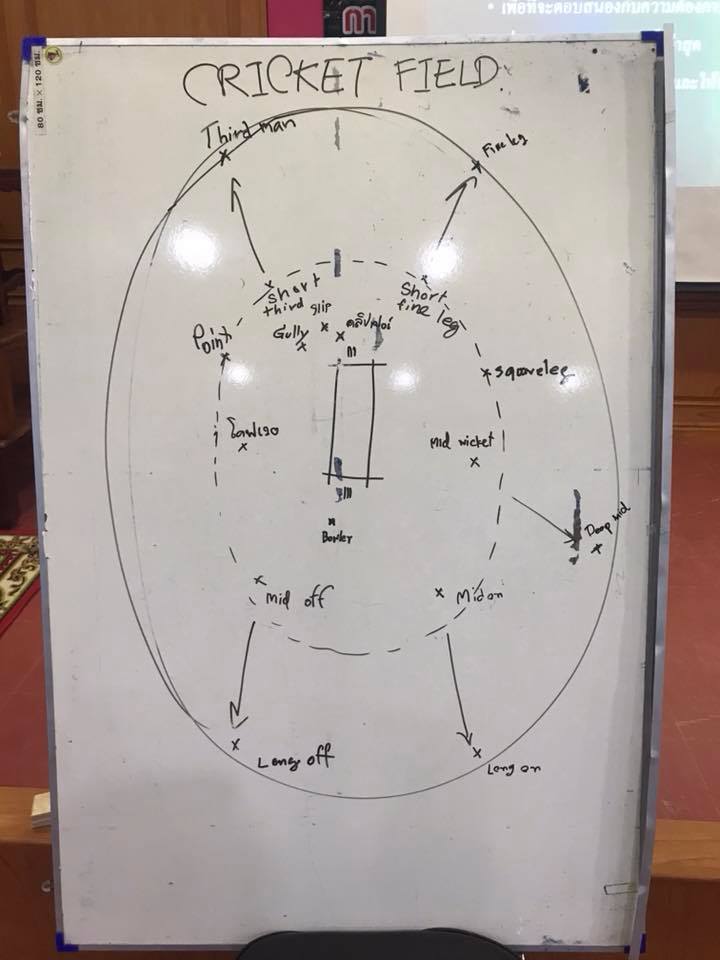 • เพื่อที่จะตอบสนองกับความต้อง
และ
80 ซม. × 120 ซม.
CRICKET FIELD.
Third man
Fine leg
Short
third
Short
fine leg
Slip
Gully
Point
square leg
Mid wicket
Deep mid
Bowler
Mid off
Mid on
Long off
Long on